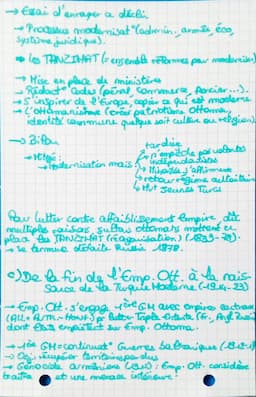 → Essai d'enrayer ce déclin
→ Processus modernisat° (admin., armée, éco,
système juridique).
⇒ les TANZIMAT (= ensemble réformes pour moderniser)
→ Mise en place de ministères
→ Rédact° Codes (pénal, commerce, foncier...).
→ S'inspirer de l'Europe, copier ce qui est moderne
→ L'Ottomanisme (créer patriotisme Ottoman,
identité commune quelque soit culture ou religion).
→ Bilan
→ Mitigé :
→ modernisation mais
→ tardive
→ n'empêche pas volontés
indépendantistes
→ s'affirment
→ retour régime autoritaire
→ Mvt Jeunes Turcs
Pour lutter contre affaiblissement Empire, dû
multiples raisons, sultans ottomans mettent en
place les TANZIMAT (réorganisation) (1839-
→ Se termine défaite Russie 1878.
c) De la fin de l'Emp. Ott. à la nais-
sance de la Turquie Moderne.
→ Emp. Ott. s'engage 1ère GM avec empires centraux
(All. + Autr.-Hongr.) pr lutter Triple Entente (Fr.,
dont États empiètent sur Emp. Ottoman.
→ 1ère GM = continuat° Guerres balkaniques
→ Obj. : récupérer territoires perdus
→ Génocide arménien (1915) : Emp. Ott. considère
traître et une menace intérieure.